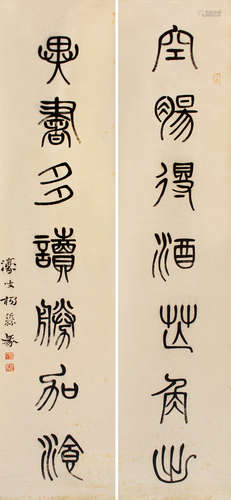 空腸得酒芒角出
異書多讀勝加湌
濠叟楊沂孫篆